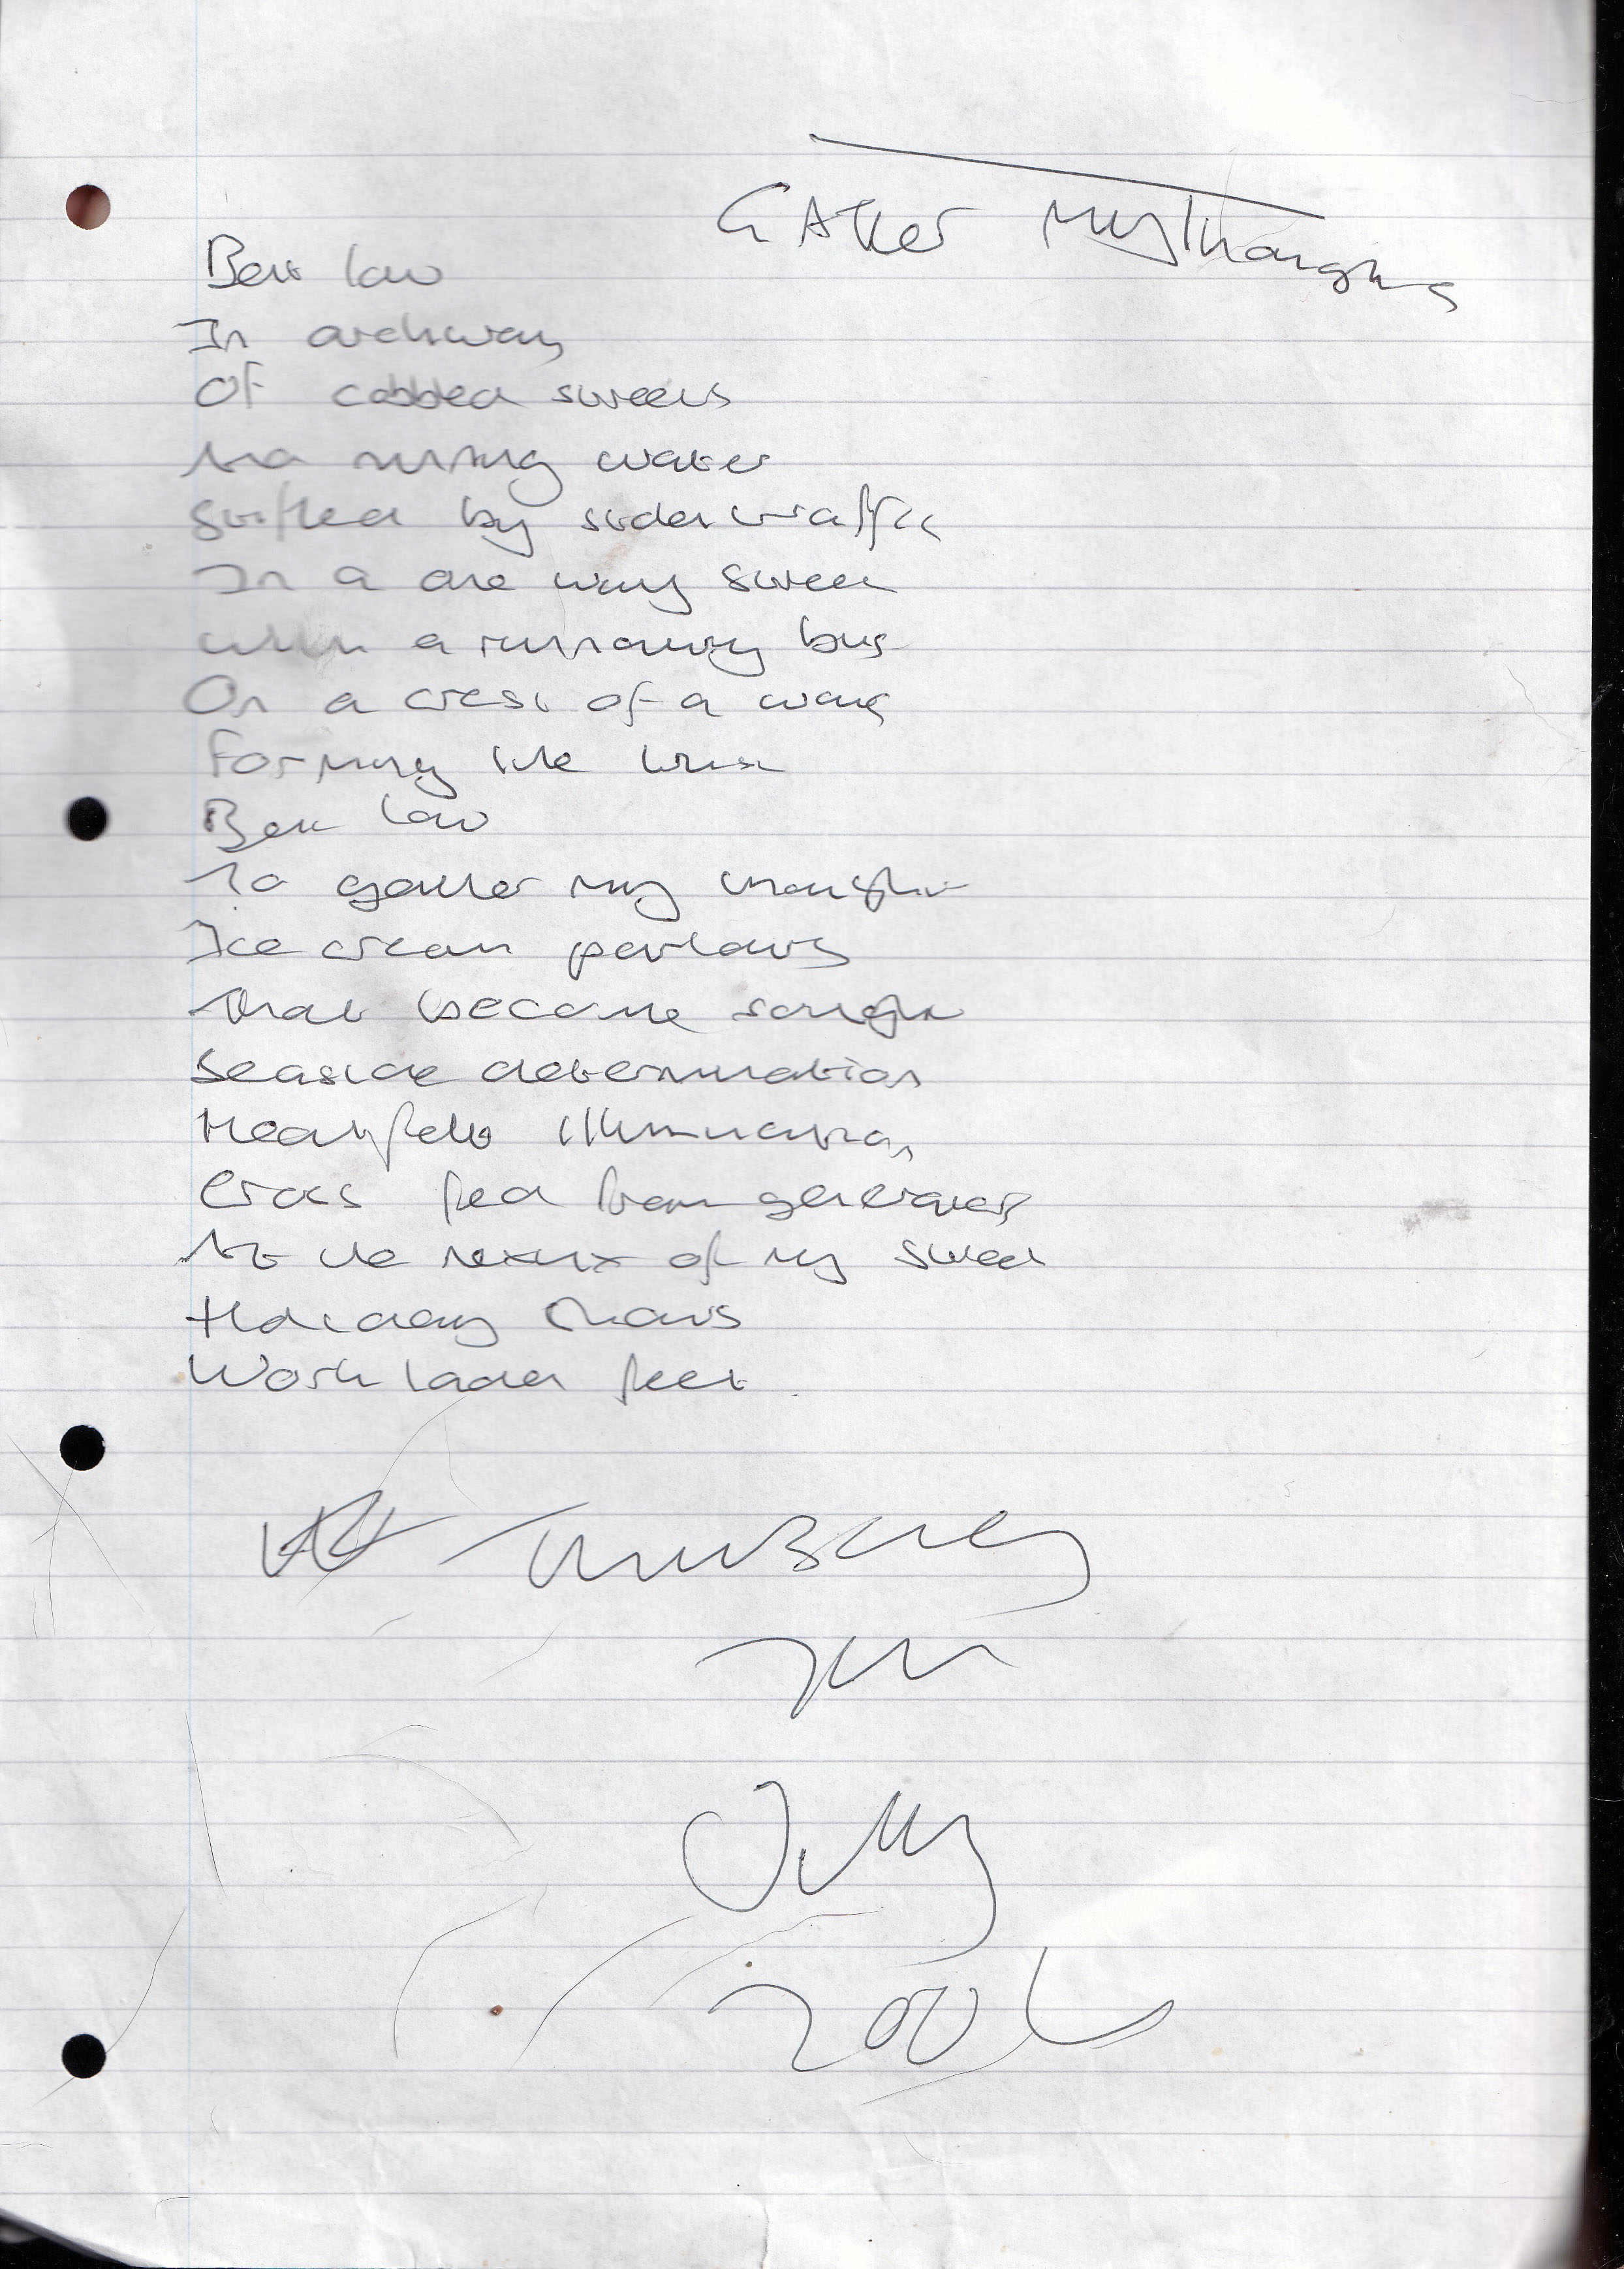 GATher My Thoughts
Bent low
In archway
Of cobbled streets
No running water
Stifled by sudden traffic
In a one way street
with a runaway bus
On a crest of a wave
Forming like
Bent low
To gather my thoughts
Ice cream parlours
that become sought
Seaside determination
Heartfelt illumination
Cross fed from generators
At the nexus of my street
Holiday chaos
Work laden feet
Thursday
7th
July
200